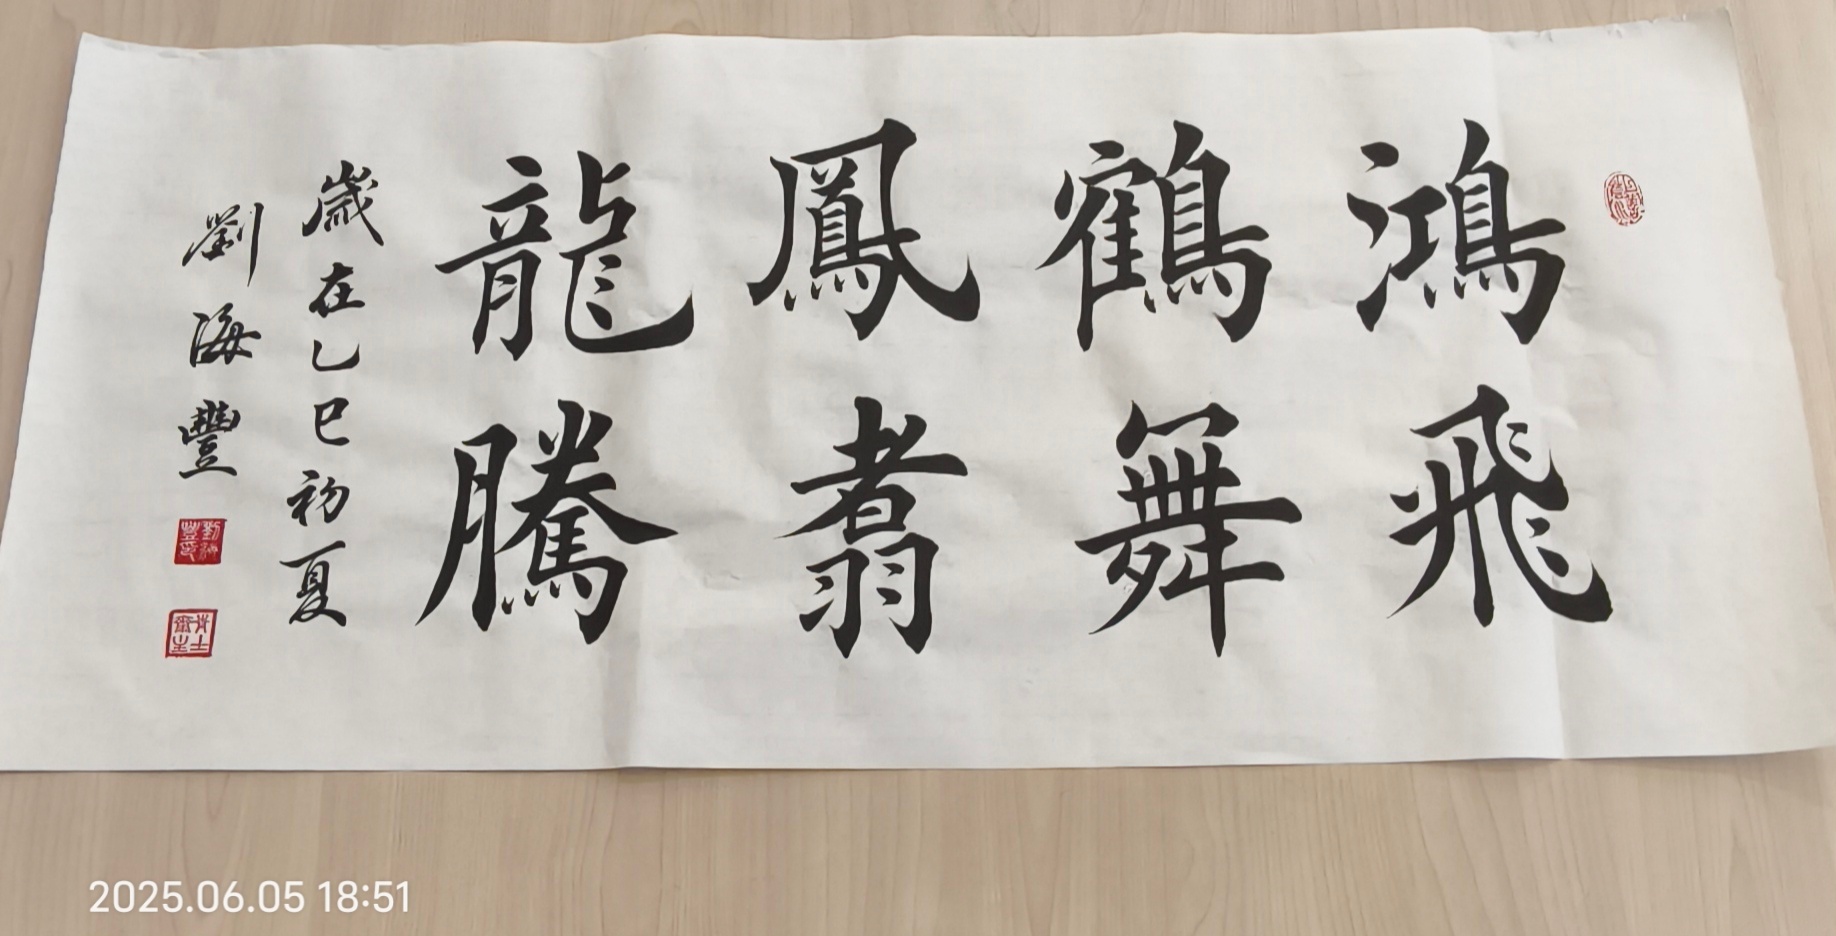 鴻飛
鶴舞
鳳翥
龍騰
歲在乙巳初夏
劉海豐
2025.06.05 18:51